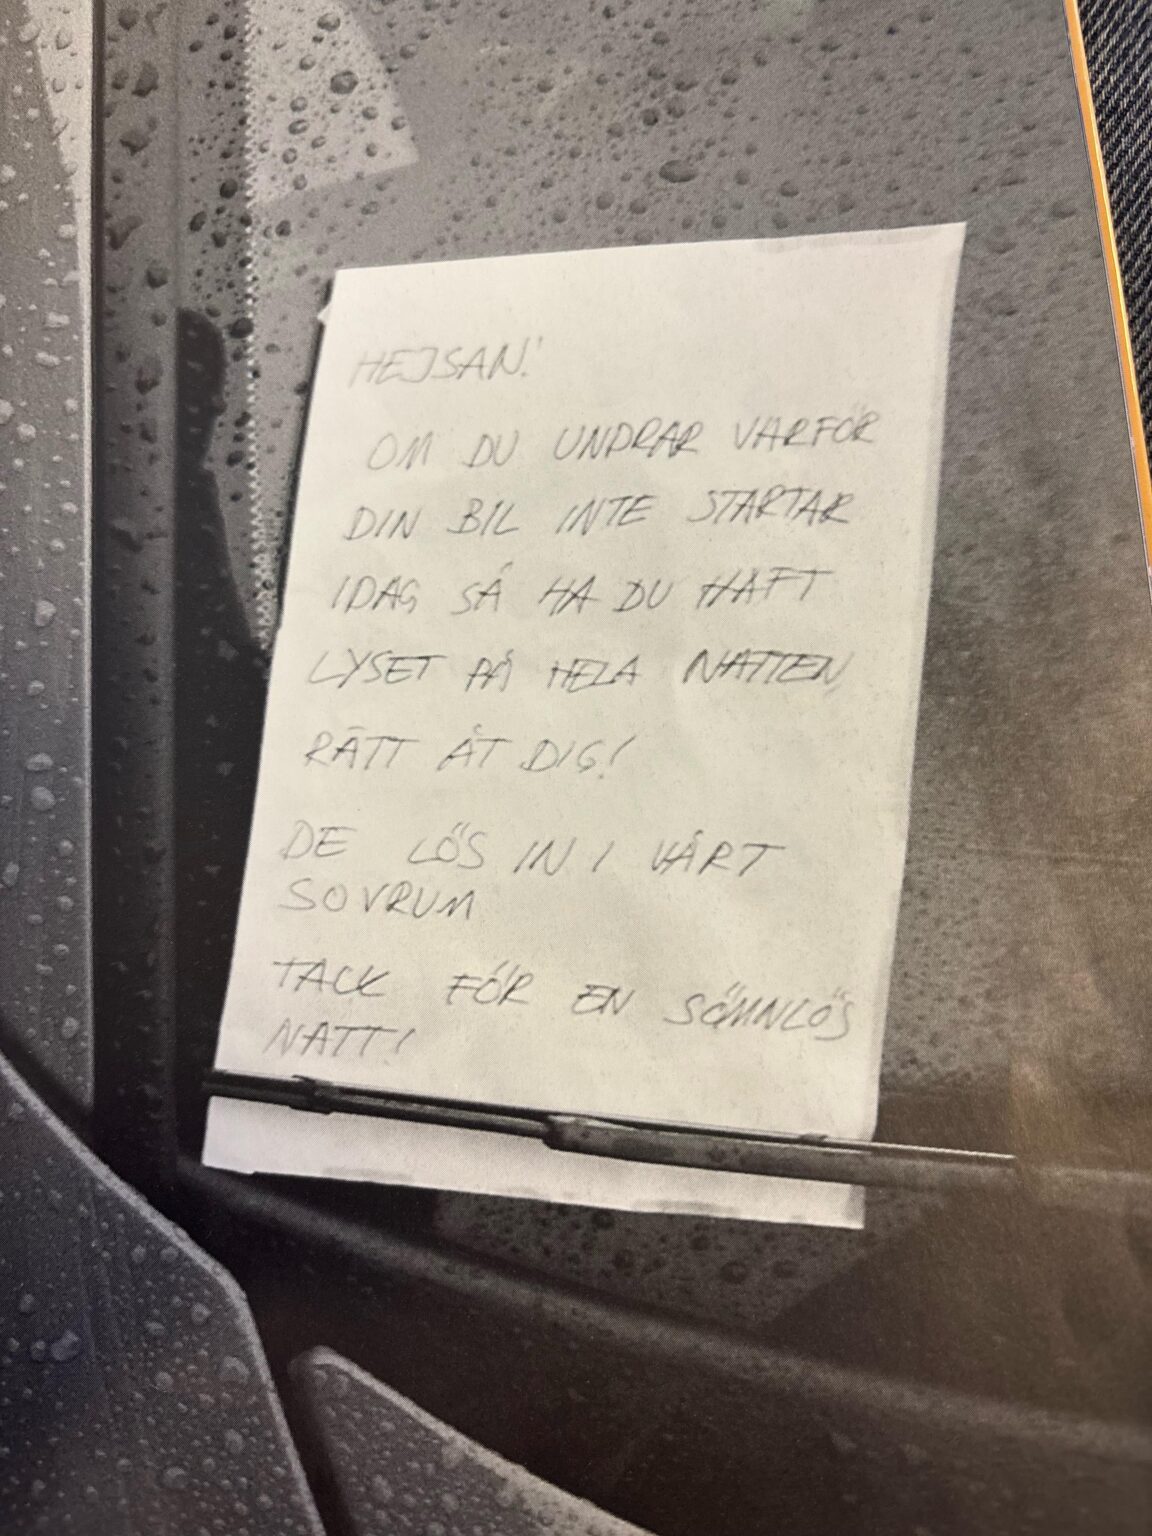 HEJSAN!
OM DU UNDRAR VARFÖR
DIN BIL INTE STARTAR
IDAG SÅ HA DU HAFT
LYSET PÅ HELA NATTEN
RÄTT ÅT DIG!
DE LÖS IN I VÅRT
SOVRUM
TACK FÖR EN SÖMNLÖS
NATT!